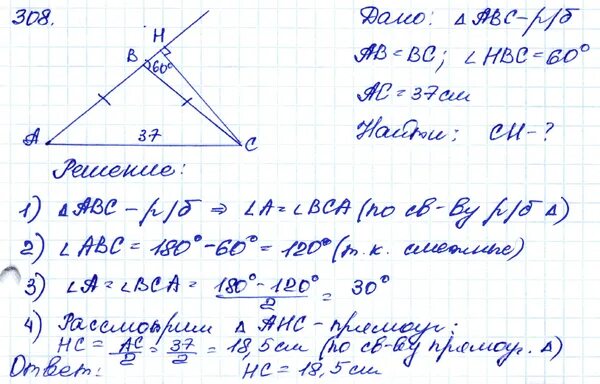 308.
Дано: △ABC-р/б
AB=BC; ∠HBC=60°
AC=37см
Найти: CH-?
H
B
60°
A
37
C
Решение:
1) △ABC-р/б ⇒ ∠A=∠BCA (по св-ву р/б △)
2) ∠ABC=180°-60°=120° (т.к. смежные)
3) ∠A=∠BCA = (180°-120°)/2 = 30°
4) Рассмотрим △AHC-прямоуг:
HC = AC/2 = 37/2 = 18,5см (по св-ву прямоуг. △)
Ответ: HC=18,5см